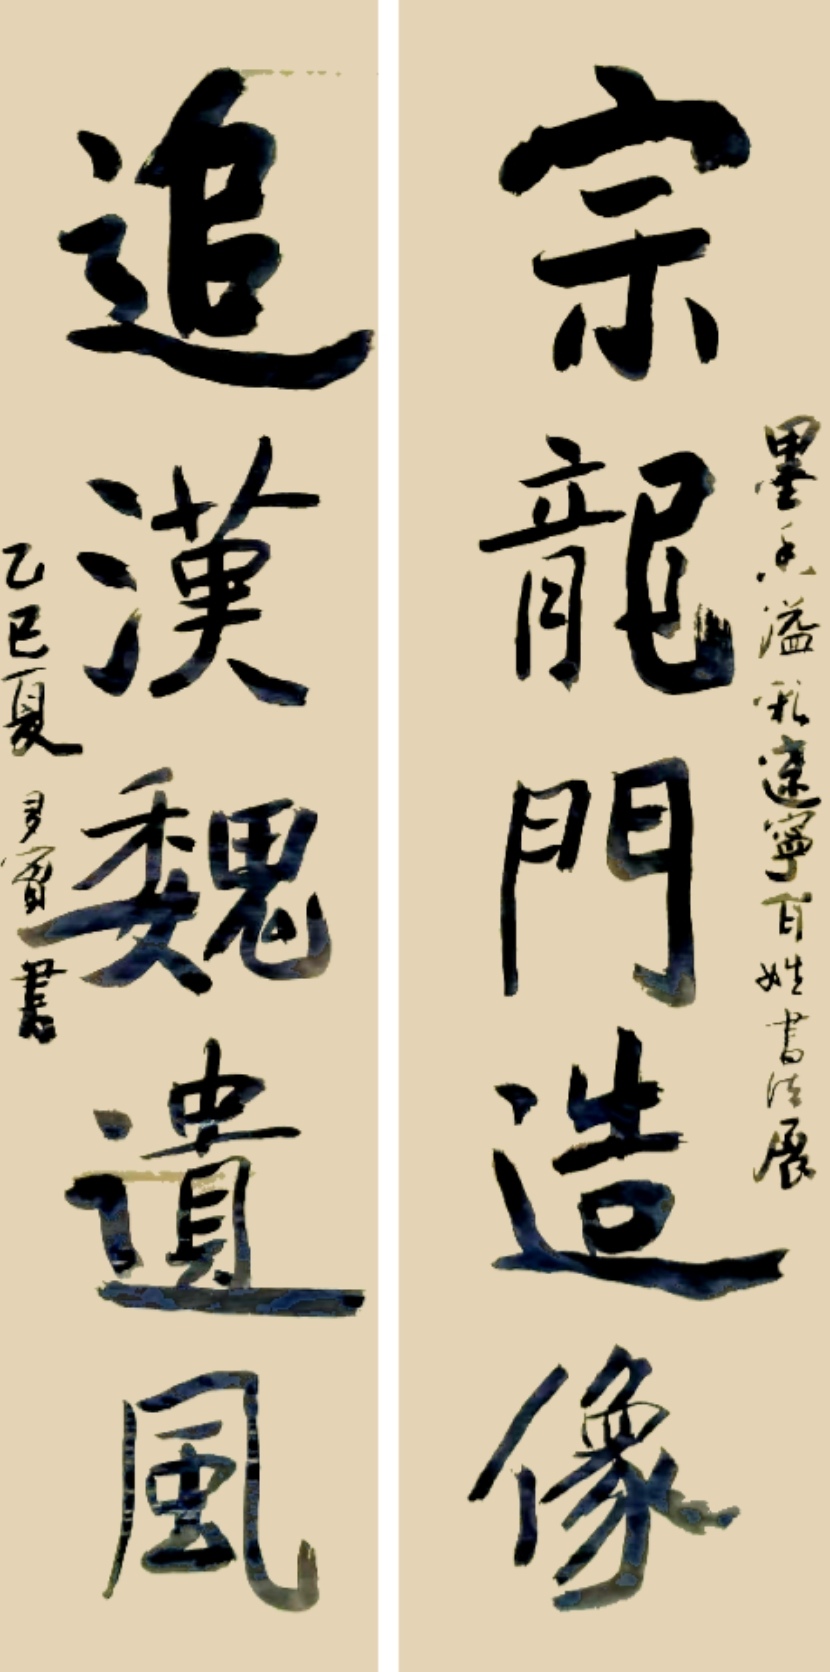 墨香溢彩遼寧百姓書法展
宗龍門造像
追漢魏遺風
乙巳夏 多寶書